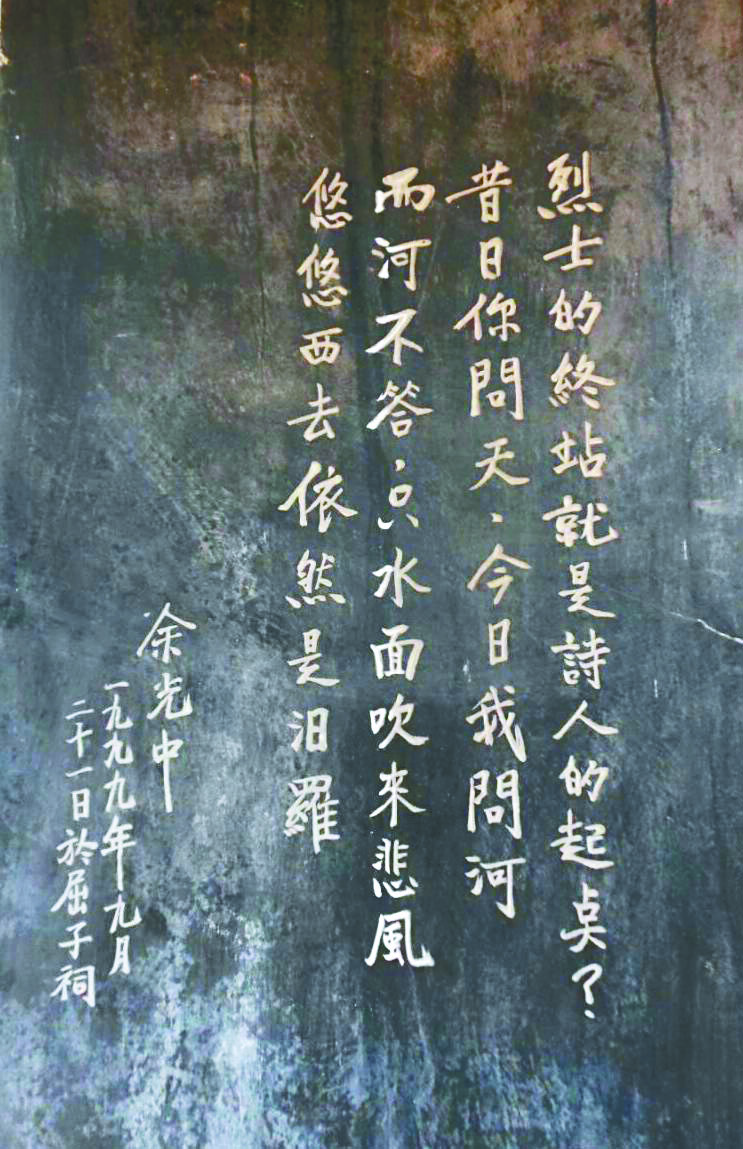 烈士的終站就是詩人的起点？
昔日你問天，今日我問河
而河不答，只水面吹來悲風
悠悠西去依然是汨羅
余光中
一九九九年九月
二十一日於屈子祠